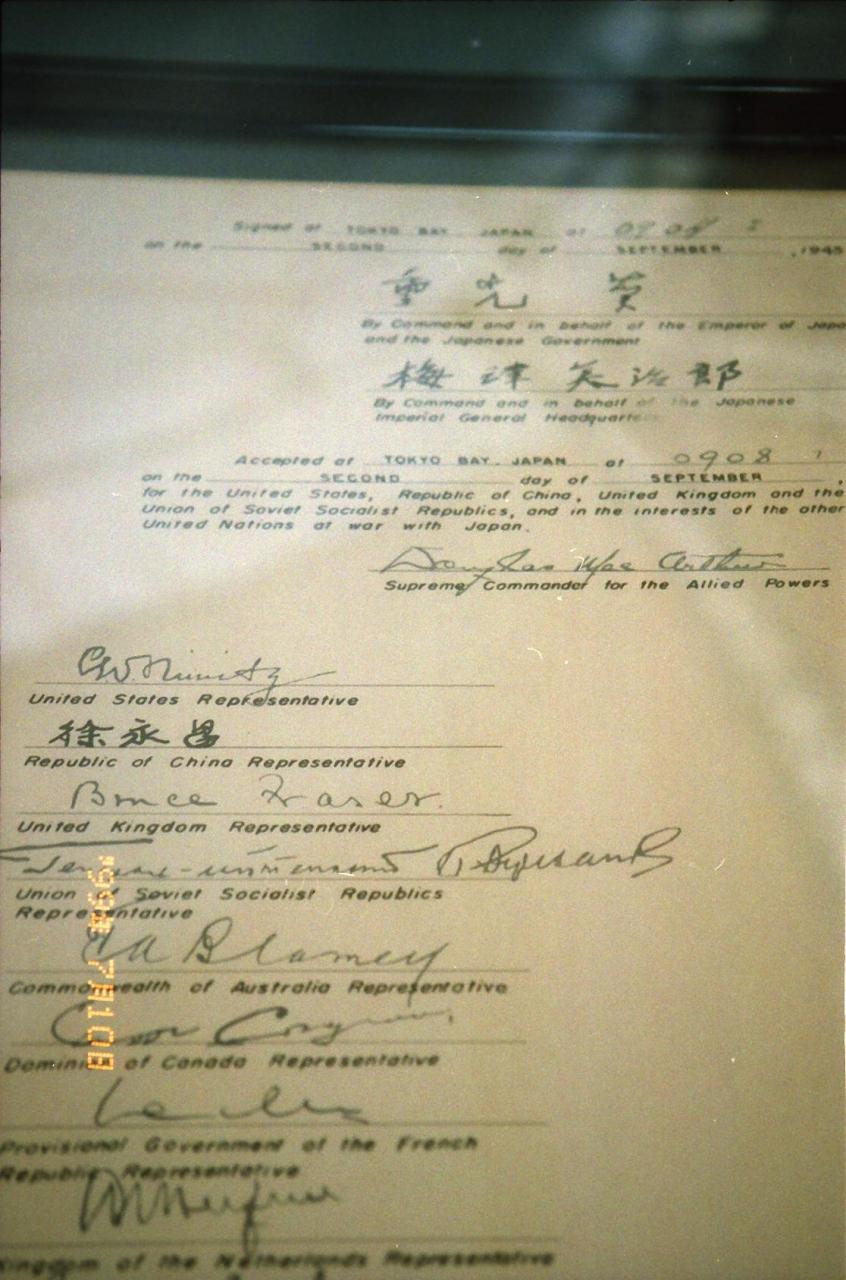 Signed at TOKYO BAY, JAPAN at 0904 I
on the SECOND day of SEPTEMBER ,1945
重光葵
By Command and in behalf of the Emperor of Japa
and the Japanese Government
梅津美治郎
By Command and in behalf of the Japanese
Imperial General Headquarters
Accepted at TOKYO BAY, JAPAN at 0908 I
on the SECOND day of SEPTEMBER ,
for the United States, Republic of China, United Kingdom and the
Union of Soviet Socialist Republics, and in the interests of the other
United Nations at war with Japan.
Douglas MacArthur
Supreme Commander for the Allied Powers
C.W. Nimitz
United States Representative
徐永昌
Republic of China Representative
Bruce Fraser
United Kingdom Representative
Union of Soviet Socialist Republics
Representative
T A Blamey
Commonwealth of Australia Representative
Dominion of Canada Representative
Provisional Government of the French
Republic Representative
Kingdom of the Netherlands Representative